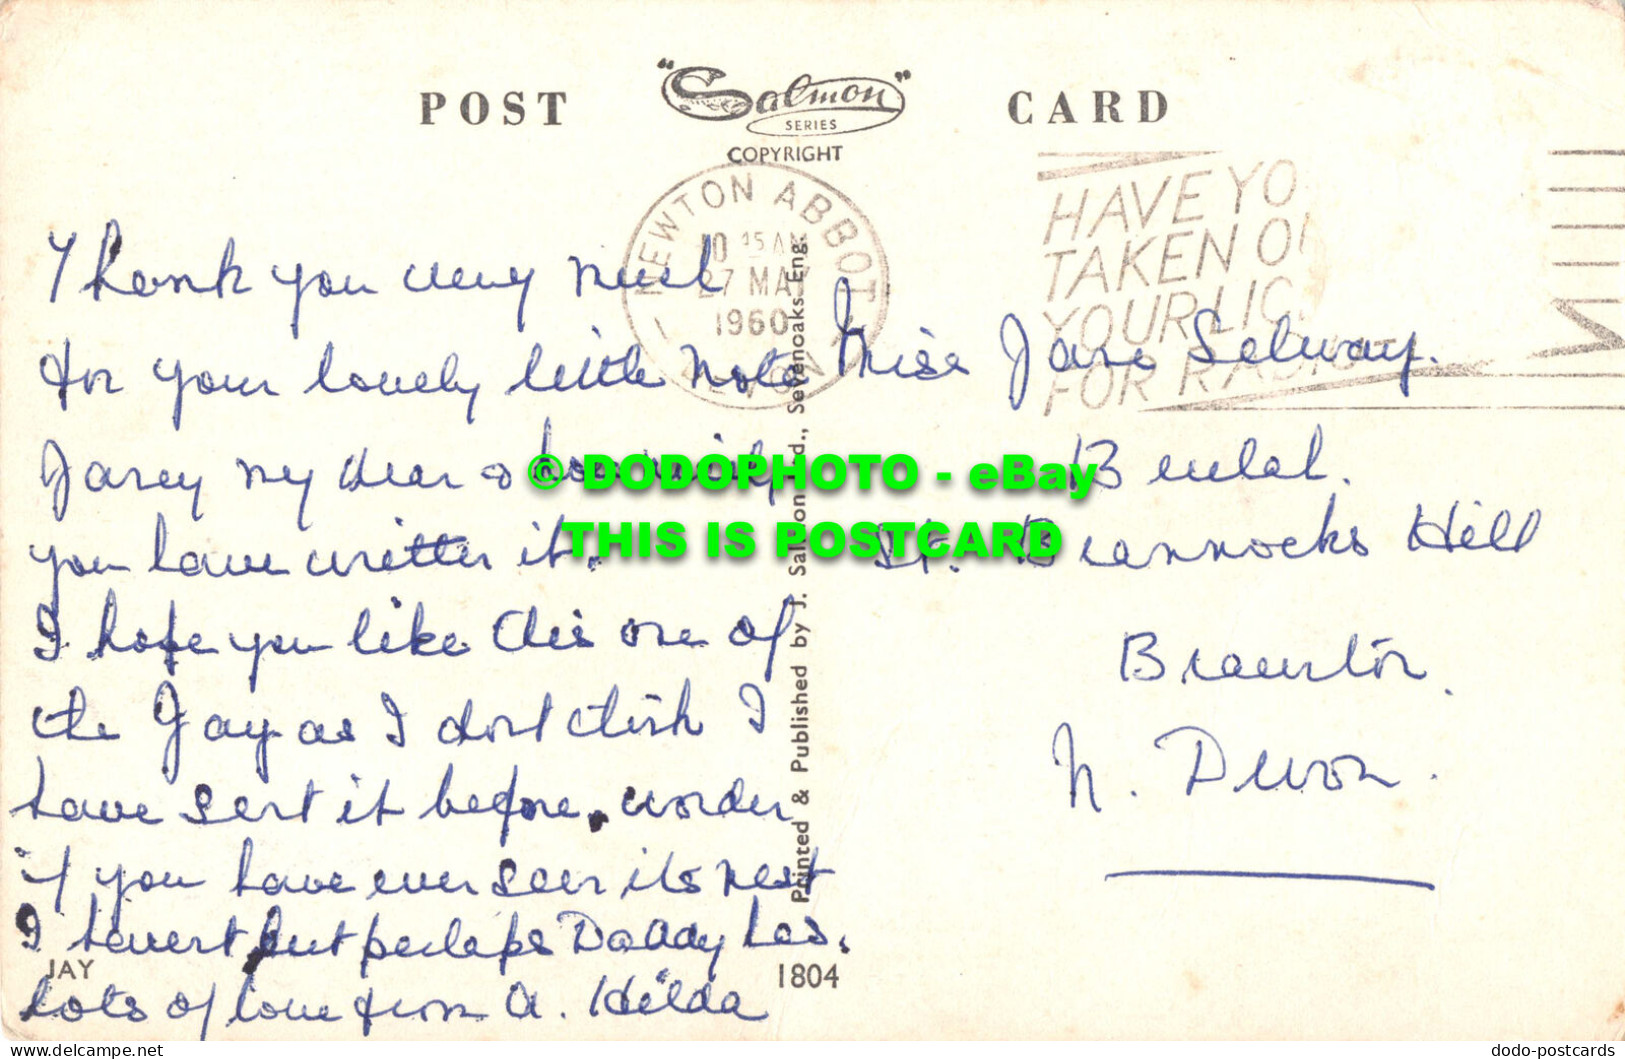 POST
"Salmon"
SERIES
COPYRIGHT
CARD
NEWTON ABBOT
10 45 AM
27 MAY
1960
DEVON
HAVE YO
TAKEN O
YOUR LIC
FOR RADIO
Thank you very much
for your lovely little note
Janey my dear & how nicely
you have written it.
I hope you like this one of
the Jay as I dont think I
have sent it before, wonder
if you have ever seen its nest
I havent but perhaps Daddy has.
Lots of love from A. Hilda
JAY
1804
Printed & Published by J. Salmon Ltd., Sevenoaks. Eng.
Miss Jane Selway.
Beulah.
St. Brannocks Hill
Braunton.
N. Devon.
© DODOPHOTO - eBay
THIS IS POSTCARD
delcampe.net
dodo-postcards